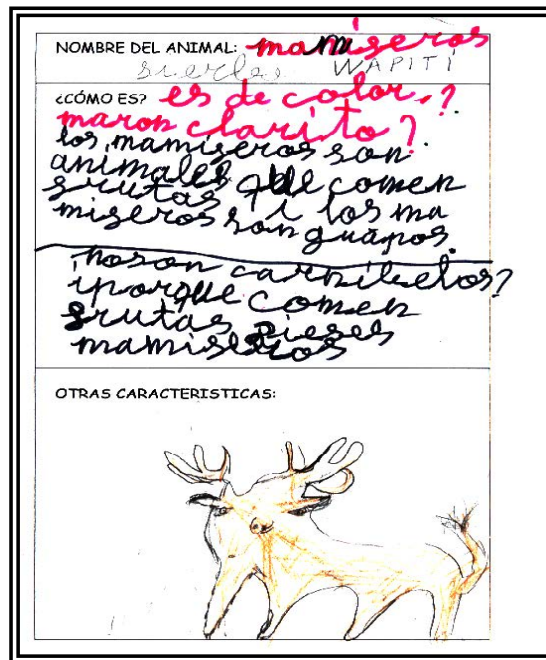 NOMBRE DEL ANIMAL: mamiseros
sierbo WAPITI
¿CÓMO ES? es de color,?
maron clarito?
los mamiseros son
animales que comen
frutas i los ma
miseros son guapos.
noson carnibelos?
iporque comen
frutas pieses
mamiseros
OTRAS CARACTERISTICAS: